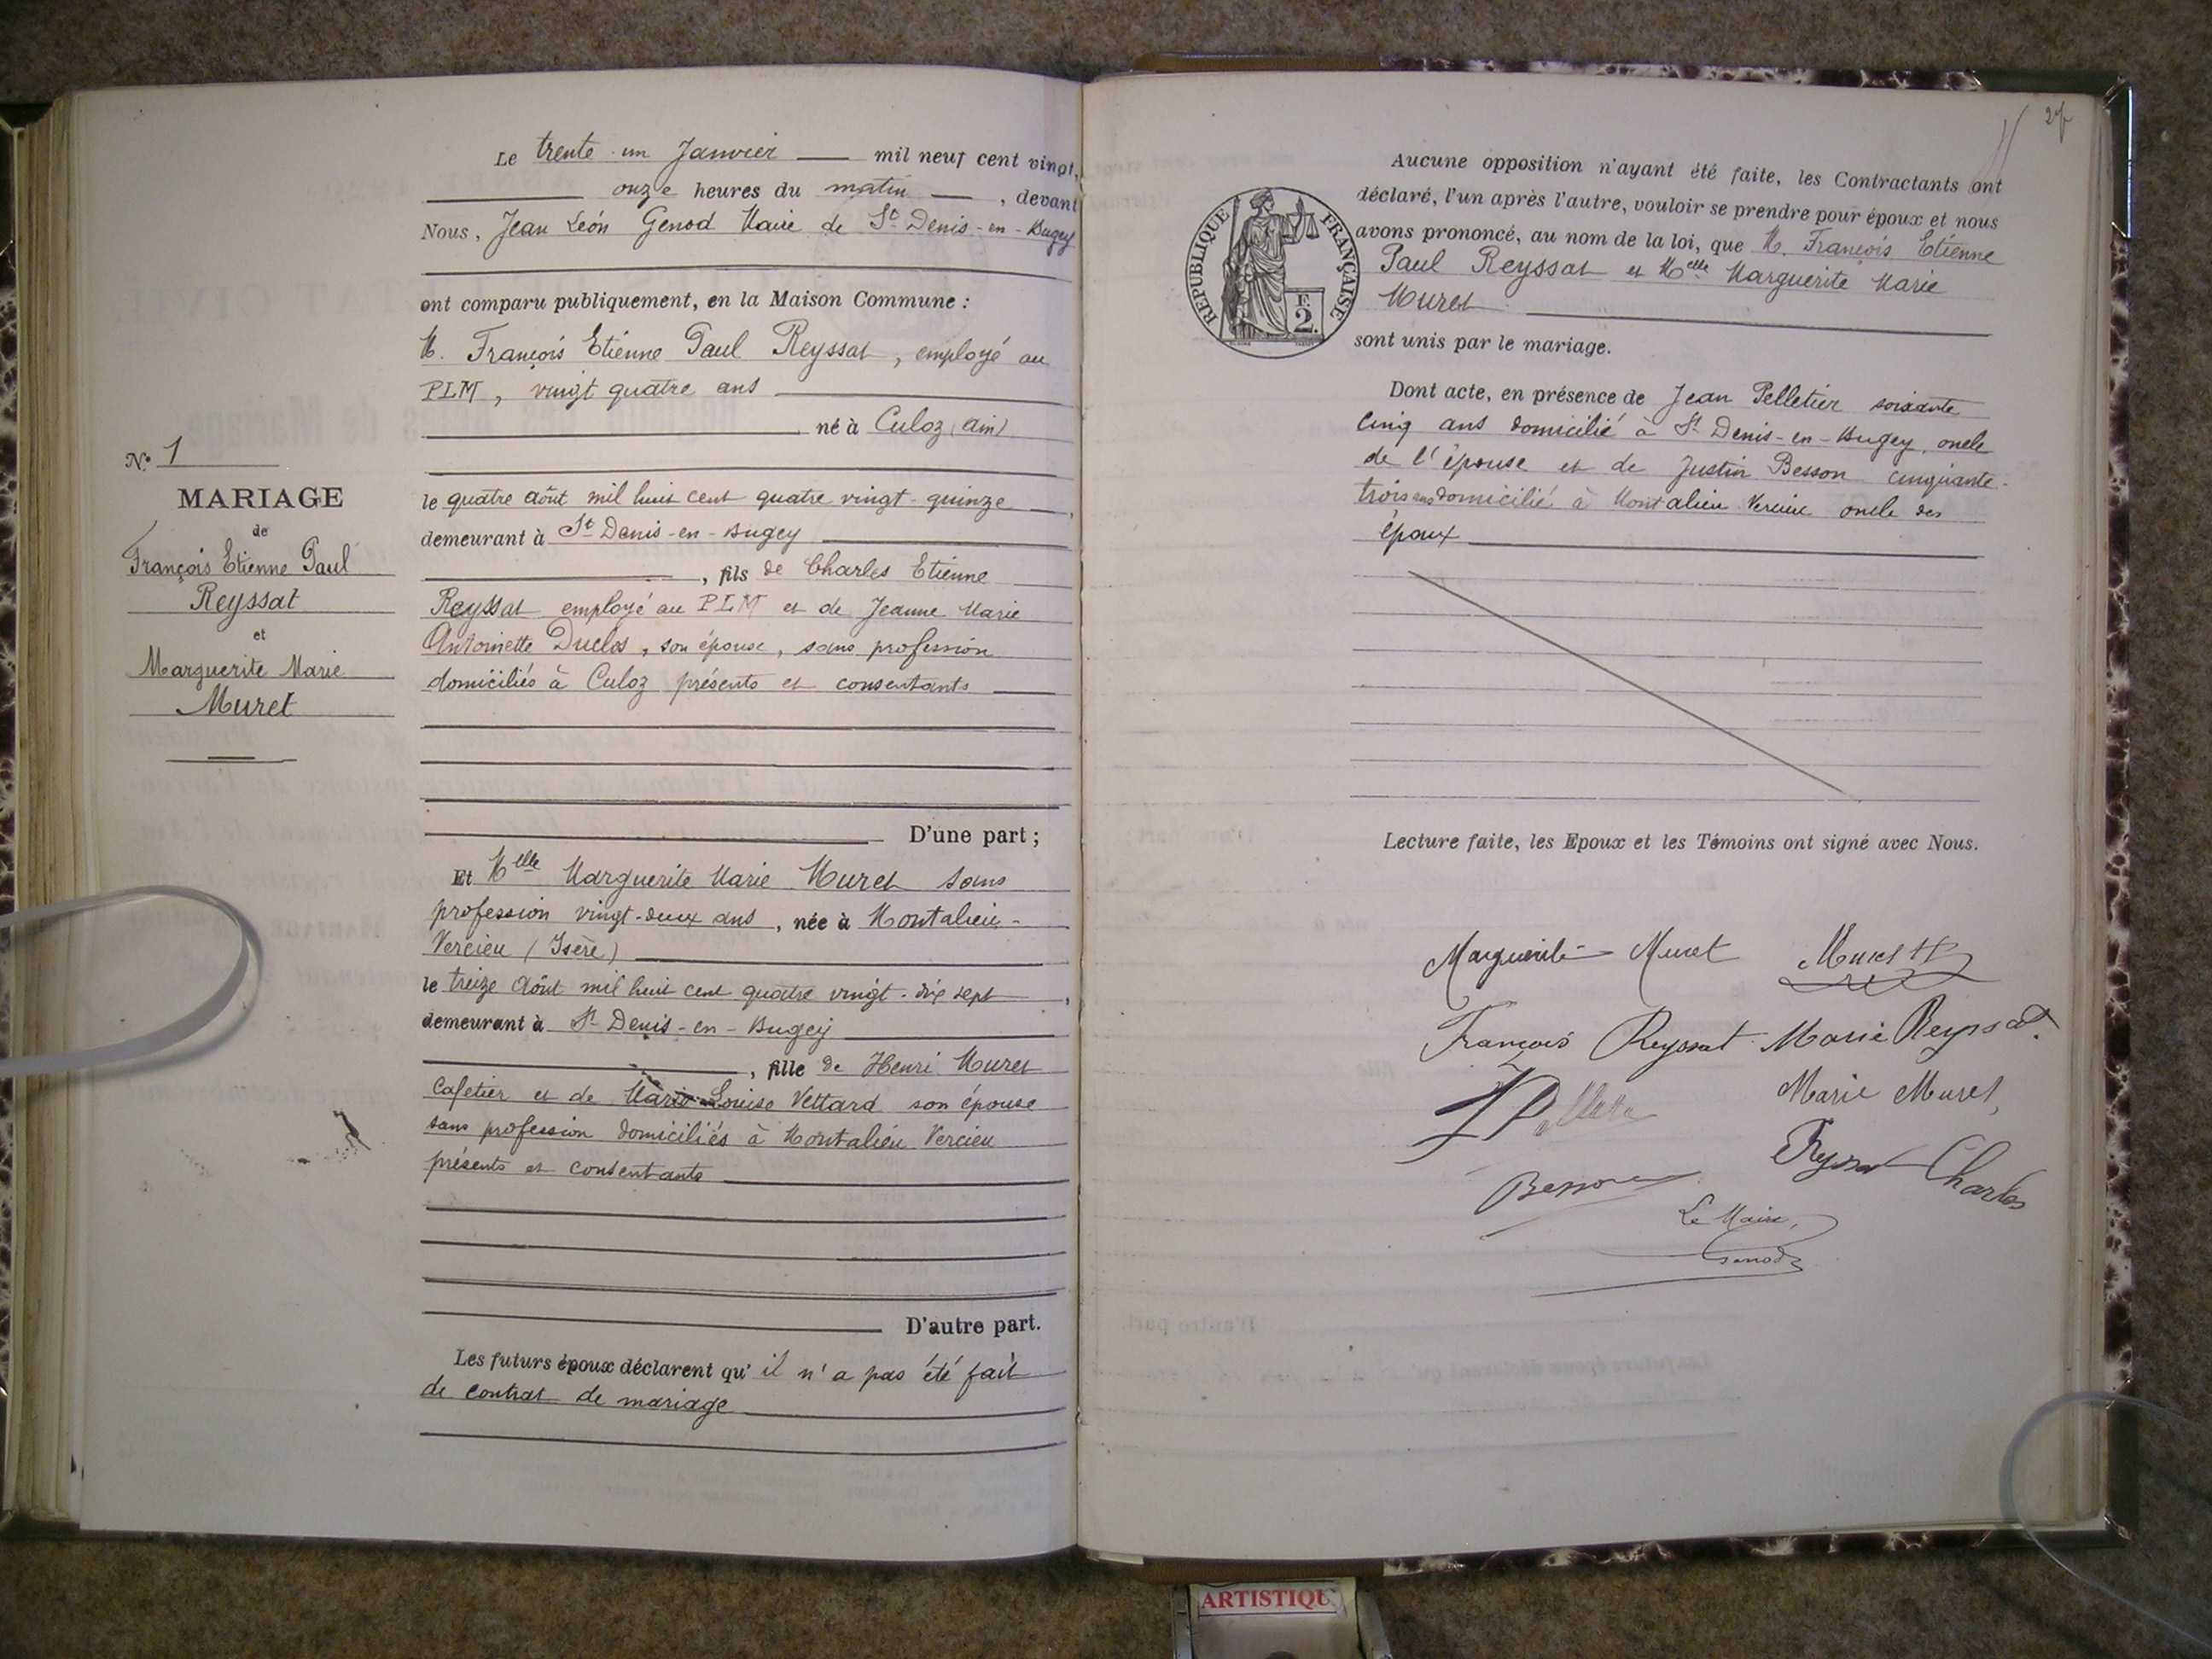 Le trente-un Janvier mil neuf cent vingt,
onze heures du matin, devant
Nous, Jean Léon Genod Maire de St Denis-en-Bugey
ont comparu publiquement, en la Maison Commune :
M. François Etienne Paul Reyssat, employé au
PLM, vingt quatre ans
né à Culoz (Ain)
le quatre Août mil huit cent quatre vingt-quinze,
demeurant à St Denis-en-Bugey
, fils de Charles Etienne
Reyssat employé au PLM et de Jeanne Marie
Antoinette Duclos, son épouse, sans profession
domiciliés à Culoz présents et consentants
D'une part ;
Et Melle Marguerite Marie Muret sans
profession vingt-deux ans, née à Montalieu-
Vercieu (Isère)
le treize Août mil huit cent quatre vingt-dix sept,
demeurant à St Denis-en-Bugey
, fille de Henri Muret
cafetier et de Marie Louise Vettard son épouse
sans profession domiciliés à Montalieu Vercieu
présents et consentants
D'autre part.
Les futurs époux déclarent qu'il n'a pas été fait
de contrat de mariage
No 1
MARIAGE
de
François Etienne Paul
Reyssat
et
Marguerite Marie
Muret
27
Aucune opposition n'ayant été faite, les Contractants ont
déclaré, l'un après l'autre, vouloir se prendre pour époux et nous
avons prononcé, au nom de la loi, que M. François Etienne
Paul Reyssat et Melle Marguerite Marie
Muret
sont unis par le mariage.
REPUBLIQUE FRANÇAISE
F.
2.
Dont acte, en présence de Jean Pelletier soixante
cinq ans domicilié à St Denis-en-Bugey, oncle
de l'épouse et de Justin Besson cinquante-
trois ans domicilié à Montalieu Vercieu oncle des
époux
Lecture faite, les Epoux et les Témoins ont signé avec Nous.
Marguerite Muret Muret H
François Reyssat Marie Reyssat
Marie Muret
Reyssat Charles
Besson
Le Maire,
Genod
ARTISTIQU